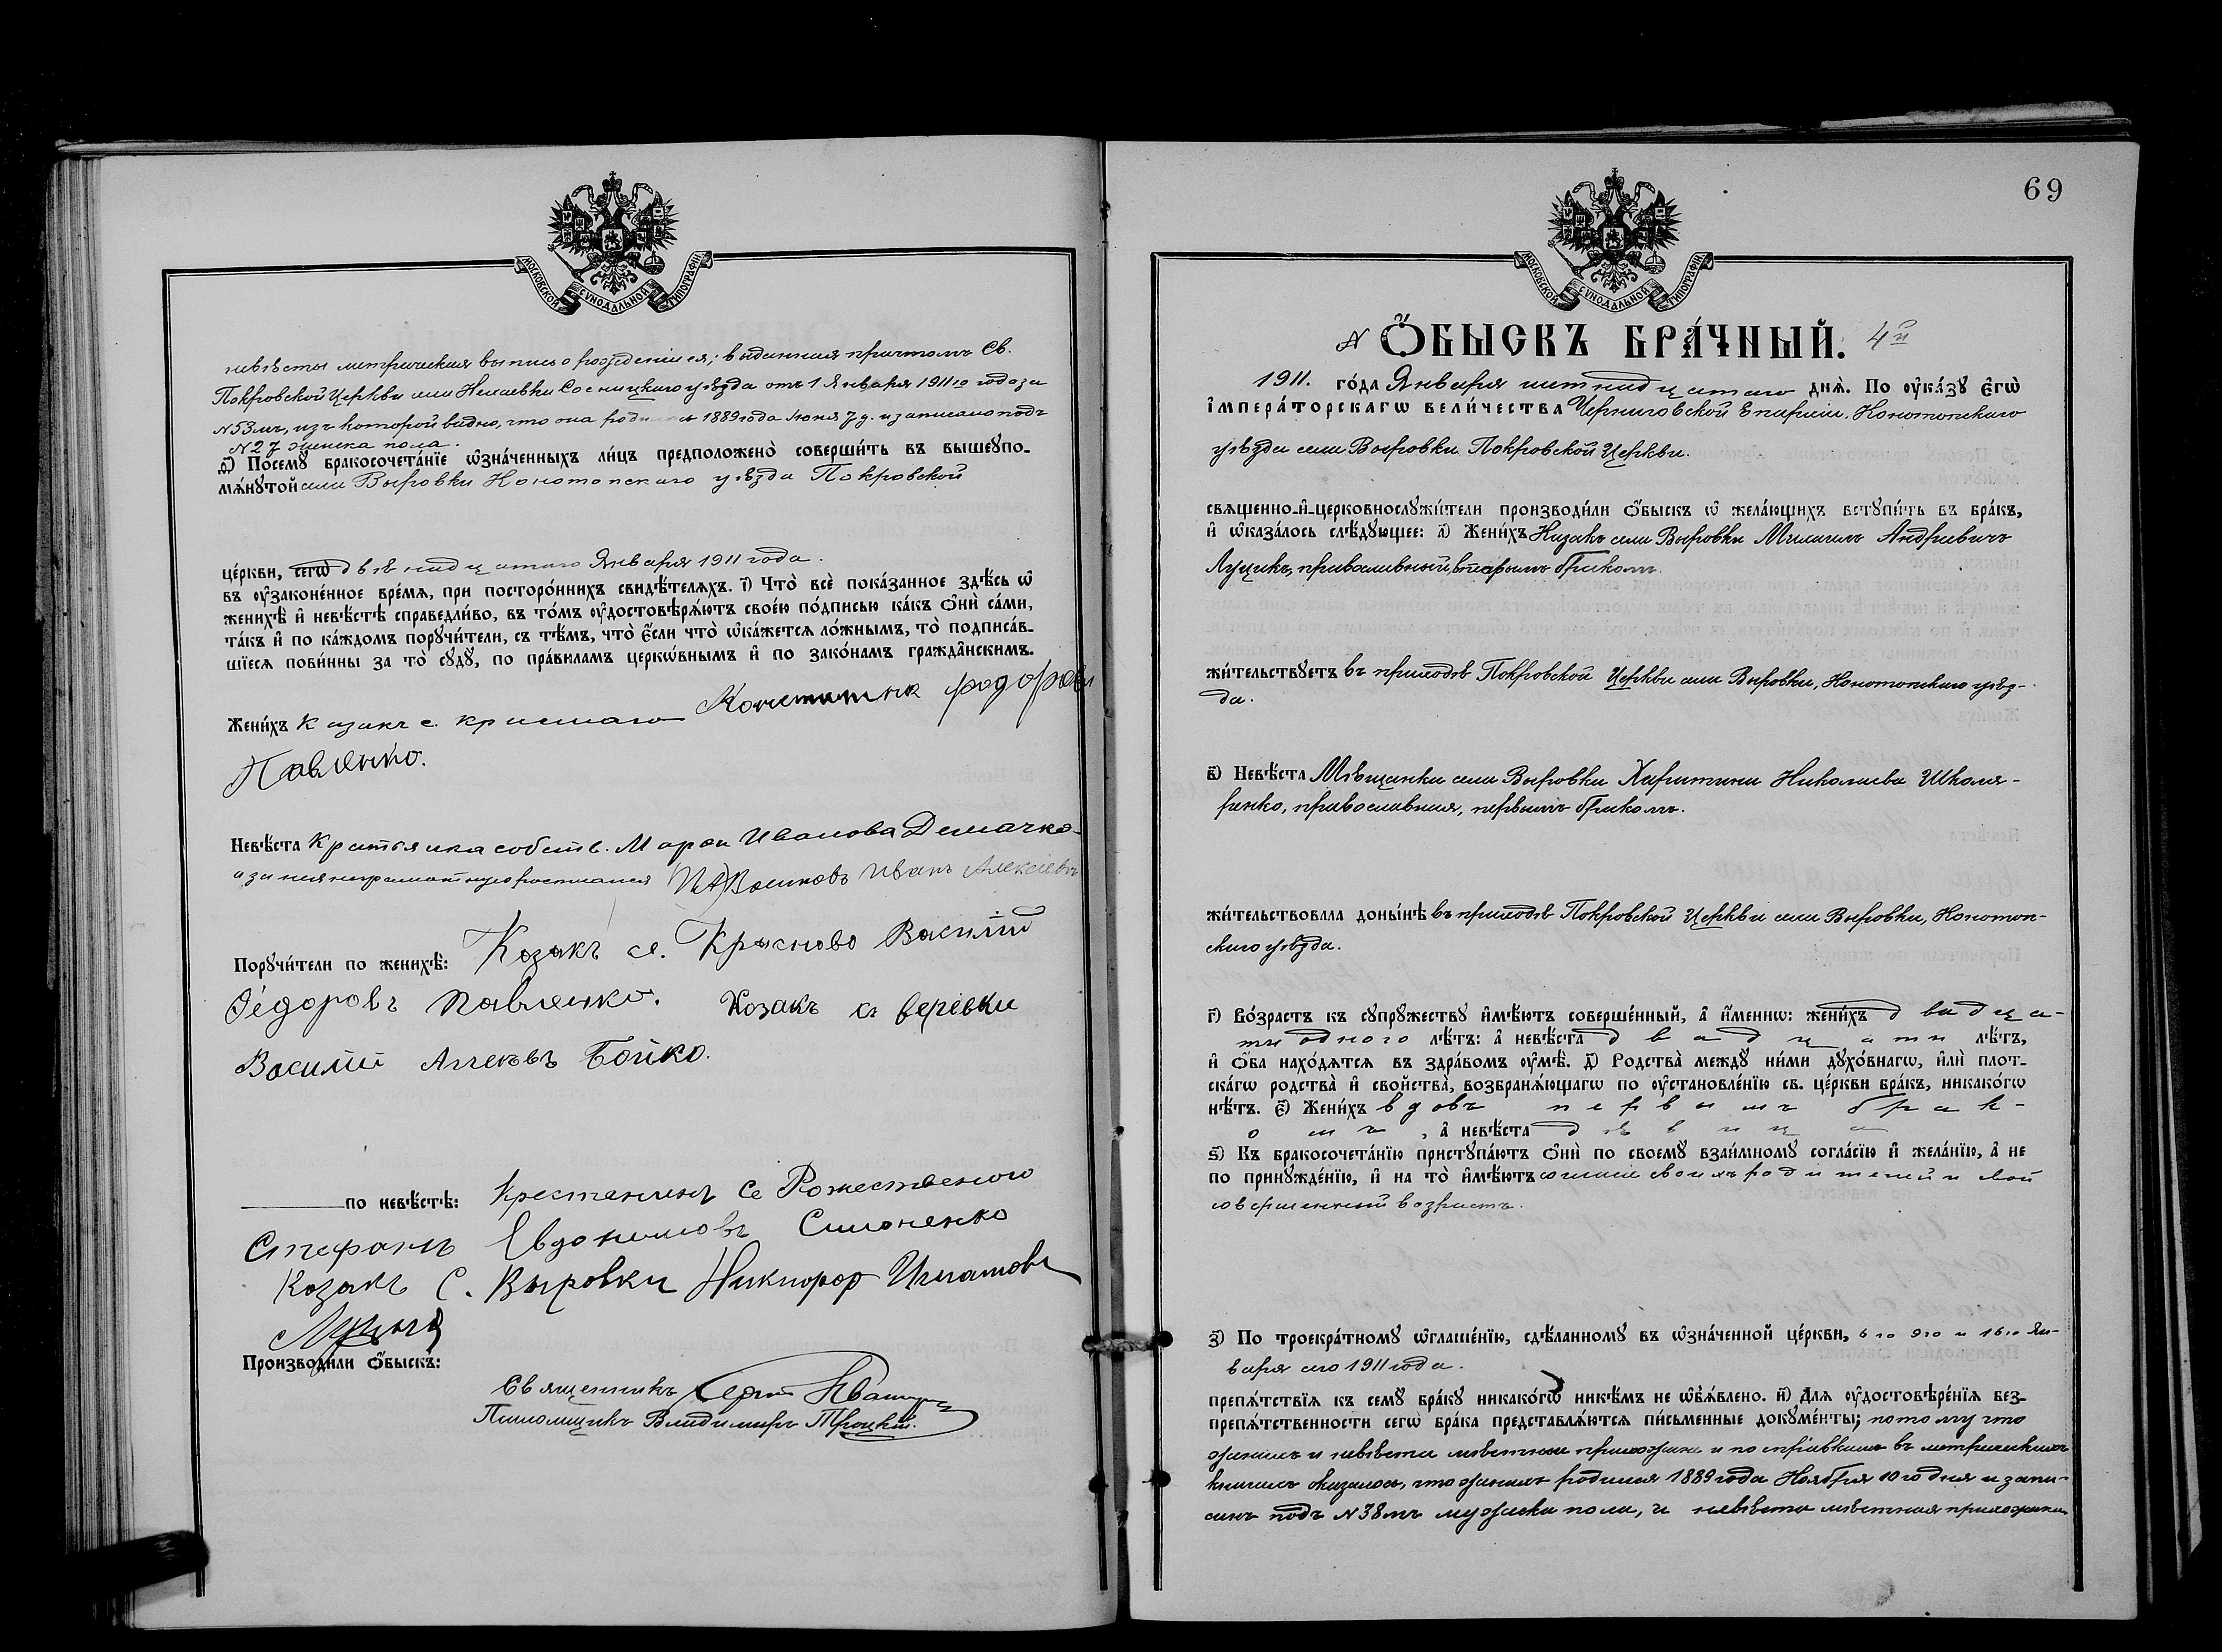 МОСКОВСКОЙ СѴНОДАЛЬНОЙ ТИПОГРАФІИ
невѣсты метрическая выпись о рожденіи ея, выданная причтомъ Св.
Покровской Церкви села Сосницкаго уѣзда отъ 1 Января 1911 го года за
№ 53 мъ, изъ которой видно, что она родилась 1889 года Іюня 7 д. и записано подъ
№ 27 женска пола.
Ѳ҃) Посемꙋ̀ бракосочета́нїе ѡ҆зна́ченныхъ ли́цъ предположено̀ соверши́ть въ вышеꙋпо-
мѧ́нꙋтой села Выровки Конотопскаго уѣзда Покровской
це́ркви, сегѡ̀ двѣнадцатаго Января 1911 года.
въ ᲂу҆законе́нное вре́мѧ, при посторо́ннихъ свидѣ́телѧхъ. і҃) Что̀ всѐ пока́занное здѣ́сь ѡ҆
женихѣ̀ и҆ невѣ́стѣ справедли́во, въ то́мъ ᲂу҆достовѣрѧ́ютъ свое́ю по́дписью ка́къ ѻ҆нѝ са́ми,
та́къ и҆ по ка́ждомъ порꙋчи́тели, съ тѣ́мъ, что̀ є҆́сли что̀ ѡ҆ка́жетсѧ ло́жнымъ, то̀ подписа́в-
шїесѧ пови́нны за то̀ сꙋдꙋ̀, по пра́виламъ церкѡ́внымъ и҆ по зако́намъ гражда̂нскимъ.
Жени́хъ Казакъ с. Краснаго
Павленко.
Невѣ́ста собств. Ивановна
Иванъ Алексіевъ
Порꙋчи́тели по женихѣ̀: Козакъ се. Крыснова Василій
Ѳедоровъ Павленко. Козакъ се веревки
Василій Бойко.
по невѣ́стѣ: Се Рожественого
Стефанъ Евдокимовъ Симоненко
Козакъ С. Выровки Никифор Игнатовъ
Производи́ли ѻ҆́быскъ:
Священникъ
Псаломщикъ Владимиръ Троцкій.
69
МОСКОВСКОЙ СѴНОДАЛЬНОЙ ТИПОГРАФІИ
№ Ѻ҆́БЫСКЪ БРА́ЧНЫЙ. 4й
1911. го́да Января шестнадцатаго днѧ̀. По ᲂу҆ка́зꙋ є҆гѡ̀
і҆мпера́торскагѡ вели́чества Черниговской Епархіи, Конотопскаго
уѣзда села Выровки Покровской Церкви.
свѧщенно-и҆-церковнослꙋжи́тели производи́ли ѻ҆́быскъ ѡ҆ жела́ющихъ встꙋпи́ть въ бра́къ,
и҆ ѡ҆каза́лось слѣ́дꙋющее: а҃) Жени́хъ Казакъ села Выровки Михаилъ Андреевичъ
Луцикъ, православный, вторымъ бракомъ.
жи́тельствꙋетъ въ приходѣ Покровской Церкви села Выровки, Конотопскаго уѣз-
да.
в҃) Невѣ́ста Мѣщанка села Выровки Харитина Николаева Школя-
ренко, православная, первымъ бракомъ.
жи́тельствовала доны́нѣ въ приходѣ Покровской Церкви села Выровки, Конотоп-
скаго уѣзда.
г҃) Во́зрастъ къ сꙋпрꙋ́жествꙋ и҆мѣ́ютъ соверше́нный, а҆ и҆́меннѡ: жени́хъ двадца-
ти одного лѣ́тъ: а҆ невѣ́ста двадцати лѣ́тъ,
и҆ ѻ҆́ба нахо́дѧтсѧ въ здра́вомъ ᲂу҆мѣ̀. д҃) Родства̀ междꙋ̀ ни́ми дꙋхо́внагѡ, и҆лѝ плот-
ска́гѡ родства̀ и҆ свойства̀, возбранѧ́ющагѡ по ᲂу҆становле́нїю св. це́ркви бра́къ, никако́гѡ
нѣ́тъ. є҃) Жени́хъ вдовъ первымъ брак-
омъ, а҆ невѣ́ста дѣвица
ѕ҃) Къ бракосочета́нїю пристꙋпа́ютъ ѻ҆нѝ по своемꙋ̀ взаи́мномꙋ согла́сїю и҆ жела́нїю, а҆ не
по принꙋжде́нїю, и҆ на то̀ и҆мѣ́ютъ согласіе своихъ родителей и свой
совершенный возрастъ.
з҃) По троекра́тномꙋ ѡ҆глаше́нїю, сдѣ́ланномꙋ въ ѡ҆зна́ченной це́ркви, 6 го 9 го и 16 го Ян-
варя сего 1911 года.
препѧ́тствїѧ къ семꙋ̀ бра́кꙋ никако́гѡ ники́мъ не ѡ҆б̾ѧ́влено. и҃) Длѧ ᲂу҆достовѣре́нїѧ без-
препѧ́тственности сегѡ̀ бра́ка представлѧ́ютсѧ пи́сьменные докꙋме́нты; потому что
женихъ и невѣста мѣстные прихожане и по справкамъ въ метрическихъ
книгахъ оказалось, что женихъ родился 1889 года Ноября 10 го дня и запи-
санъ подъ № 38 мъ мужска пола, а невѣста мѣстная прихожанка